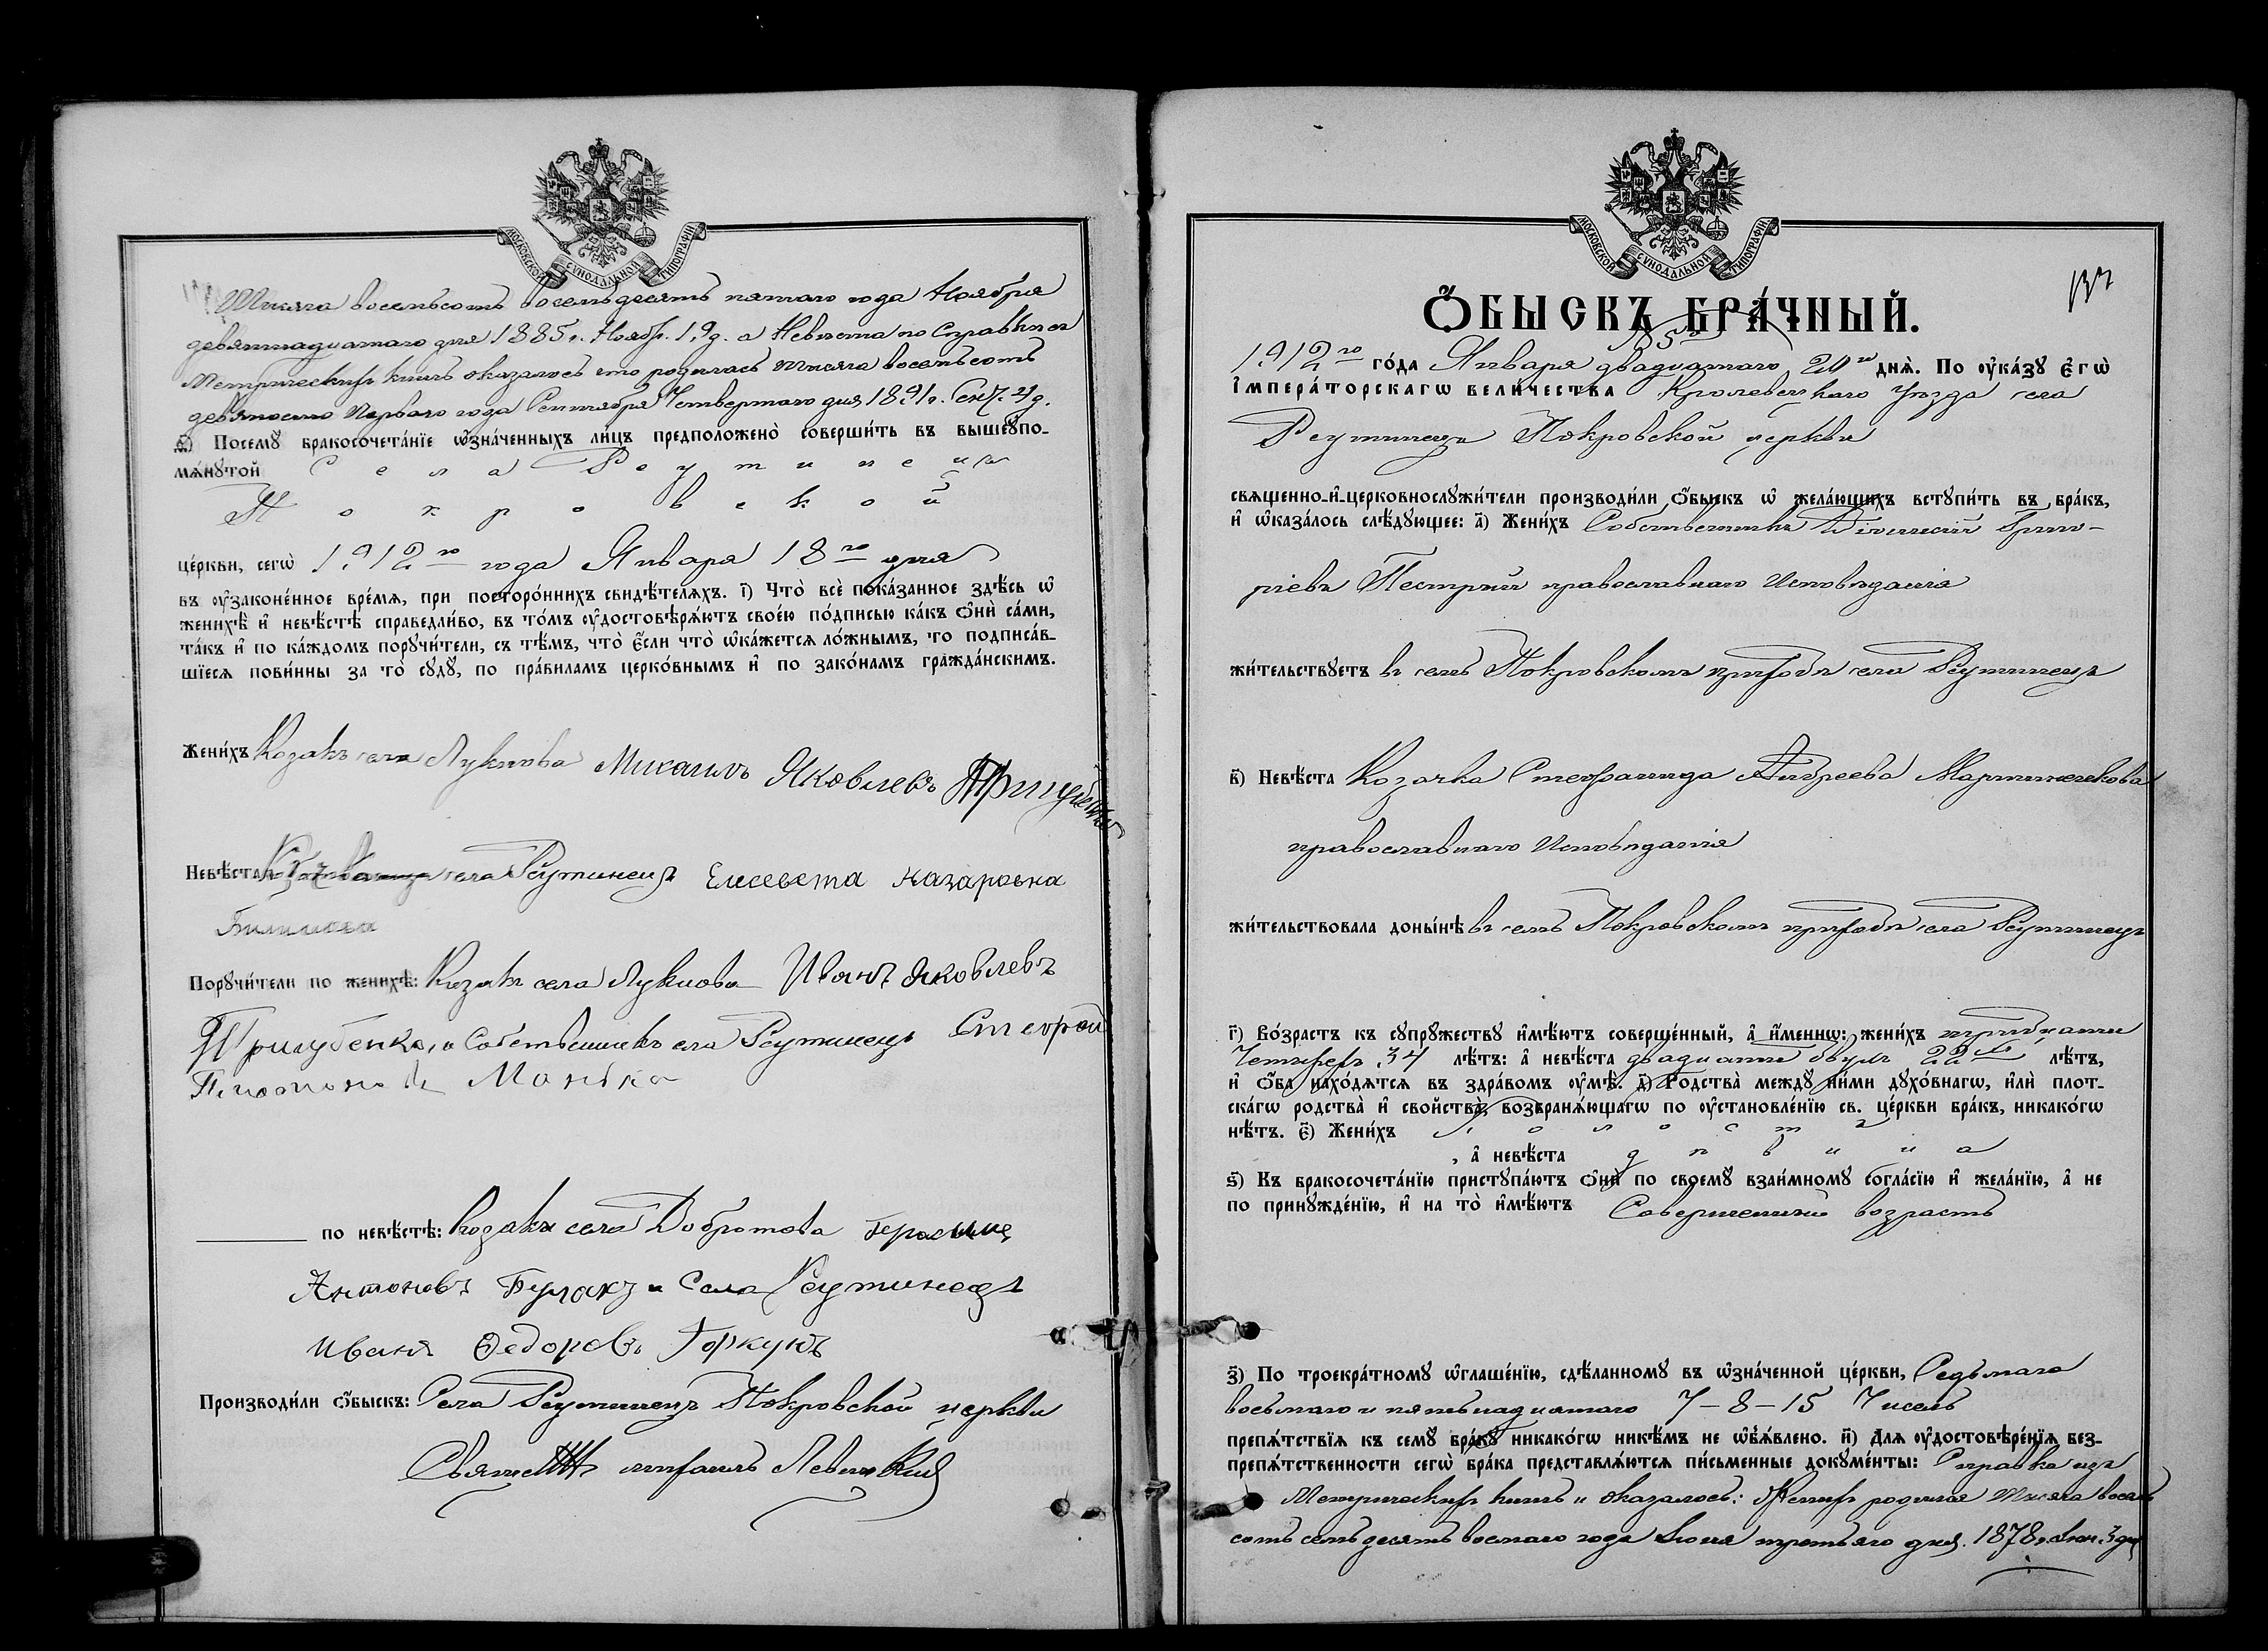 МОСКОВСКОЙ СѴНОДАЛЬНОЙ ТИПОГРАФІИ
Тысяча восемьсотъ восемьдесятъ пятаго года Ноября
девятнадцатаго дня 1885 г. Ноябр. 19 д. а Невѣста по Справкѣ изъ
Метрическихъ книгъ оказалось что родилась тысяча восемьсотъ
девяносто Перваго года Сентября Четвертаго дня 1891 г. Сент. 4 д.
Посемꙋ̀ бракосочета́нїе ѡ҆зна́ченныхъ ли́цъ предположено̀ соверши́ть въ вышеꙋпо-
мѧ́нꙋтой Села Реутинецъ
Покровской
це́ркви, сегѡ̀ 1912 го года Января 18 го дня
въ ᲂу҆законе́нное вре́мѧ, при посторо́ннихъ свидѣ́телѧхъ. і҃) Что̀ всѐ пока́занное здѣ́сь ѡ҆
женихѣ̀ и҆ невѣ́стѣ справедли́во, въ то́мъ ᲂу҆достовѣрѧ́ютъ свое́ю по́дписью ка́къ ѻ҆нѝ са́ми,
та́къ и҆ по ка́ждомъ порꙋчи́тели, съ тѣ́мъ, что̀ є҆́сли что̀ ѡ҆ка́жетсѧ ло́жнымъ, то подписа́в-
шїесѧ пови́нны за то̀ сꙋдꙋ̀, по пра́виламъ церко́внымъ и҆ по зако́намъ гражда́нскимъ.
Жени́хъ Козакъ села Лукнова Михаилъ Яковлевъ Пригубенко
Невѣ́ста села Реутинецъ Елисевета Назаровна
Порꙋчи́тели по женихѣ̀: Козакъ села Лукнова Иванъ Яковлевъ
Пригубенко, и Собственникъ села Реутинецъ
по невѣ́стѣ: Козаки села Добротова Герасимъ
Антоновъ Буракъ и Села Реутинецъ
Иванъ Федоровъ Горкунъ
Производи́ли ѻ҆́быскъ: Села Реутинецъ Покровской церкви
Левицкий
МОСКОВСКОЙ СѴНОДАЛЬНОЙ ТИПОГРАФІИ
137
Ѻ҆́БЫСКЪ БРА́ЧНЫЙ.
1912 го го́да Января двадцатаго 20 го днѧ̀. По ᲂу҆ка́зꙋ Є҆гѡ̀
І҆мпера́торскагѡ вели́чества Кролевецкаго Уѣзда села
Реутинецъ Покровской церкви
свѧщенно-и҆-церковнослꙋжи́тели производи́ли ѻ҆́быскъ ѡ҆ жела́ющихъ встꙋпи́ть въ бра́къ,
и҆ ѡ҆каза́лось слѣ́дꙋющее: а҃) Жени́хъ Собственникъ Діонисій Григо-
ріевъ Пестрий православнаго Исповѣданія
жи́тельствꙋетъ въ селѣ Покровскомъ приходѣ села Реутинецъ
в҃) Невѣ́ста Козачка Стефанида Андреева Мартиненкова
православнаго Исповѣданія
жи́тельствовала доны́нѣ въ селѣ Покровскомъ приходѣ села Реутинецъ
г҃) Во́зрастъ къ сꙋпрꙋ́жествꙋ и҆мѣ́ютъ соверше́нный, а҆ и҆́меннѡ: жени́хъ тридцати
Четырехъ 34 лѣ́тъ: а҆ невѣ́ста двадцати двухъ 22 лѣ́тъ,
и҆ ѻ҆́ба нахо́дѧтсѧ въ здра́вомъ ᲂу҆мѣ̀. д҃) Родства̀ междꙋ̀ ни́ми дꙋхо́внагѡ, и҆лѝ плот-
ска́гѡ родства̀ и҆ свойства̀, возбранѧ́ющагѡ по ᲂу҆становле́нїю св. це́ркви бра́къ, никако́гѡ
нѣ́тъ. є҃) Жени́хъ холостъ
, а҆ невѣ́ста дѣвица
ѕ҃) Къ бракосочета́нїю пристꙋпа́ютъ ѻ҆нѝ по своемꙋ̀ взаи́мномꙋ согла́сїю и҆ жела́нїю, а҆ не
по принꙋжде́нїю, и҆ на то̀ и҆мѣ́ютъ Совершенный возрастъ
з҃) По троекра́тномꙋ ѡ҆глаше́нїю, сдѣ́ланномꙋ въ ѡ҆зна́ченной це́ркви, Седьмаго
восьмаго и пятнадцатаго 7 - 8 - 15 Чиселъ
препѧ́тствїѧ къ семꙋ̀ бра́кꙋ никако́гѡ никѣ́мъ не ѡ҆бъѧ́влено. и҃) Длѧ ᲂу҆достовѣре́нїѧ без-
препѧ́тственности сегѡ̀ бра́ка представлѧ́ютсѧ пи́сьменные докꙋме́нты: Справка изъ
Метрическихъ книгъ и оказалось: Женихъ родился Тысяча восемь
сотъ семьдесятъ восмаго года Іюня третьяго дня. 1878 г. Іюн. 3 дня